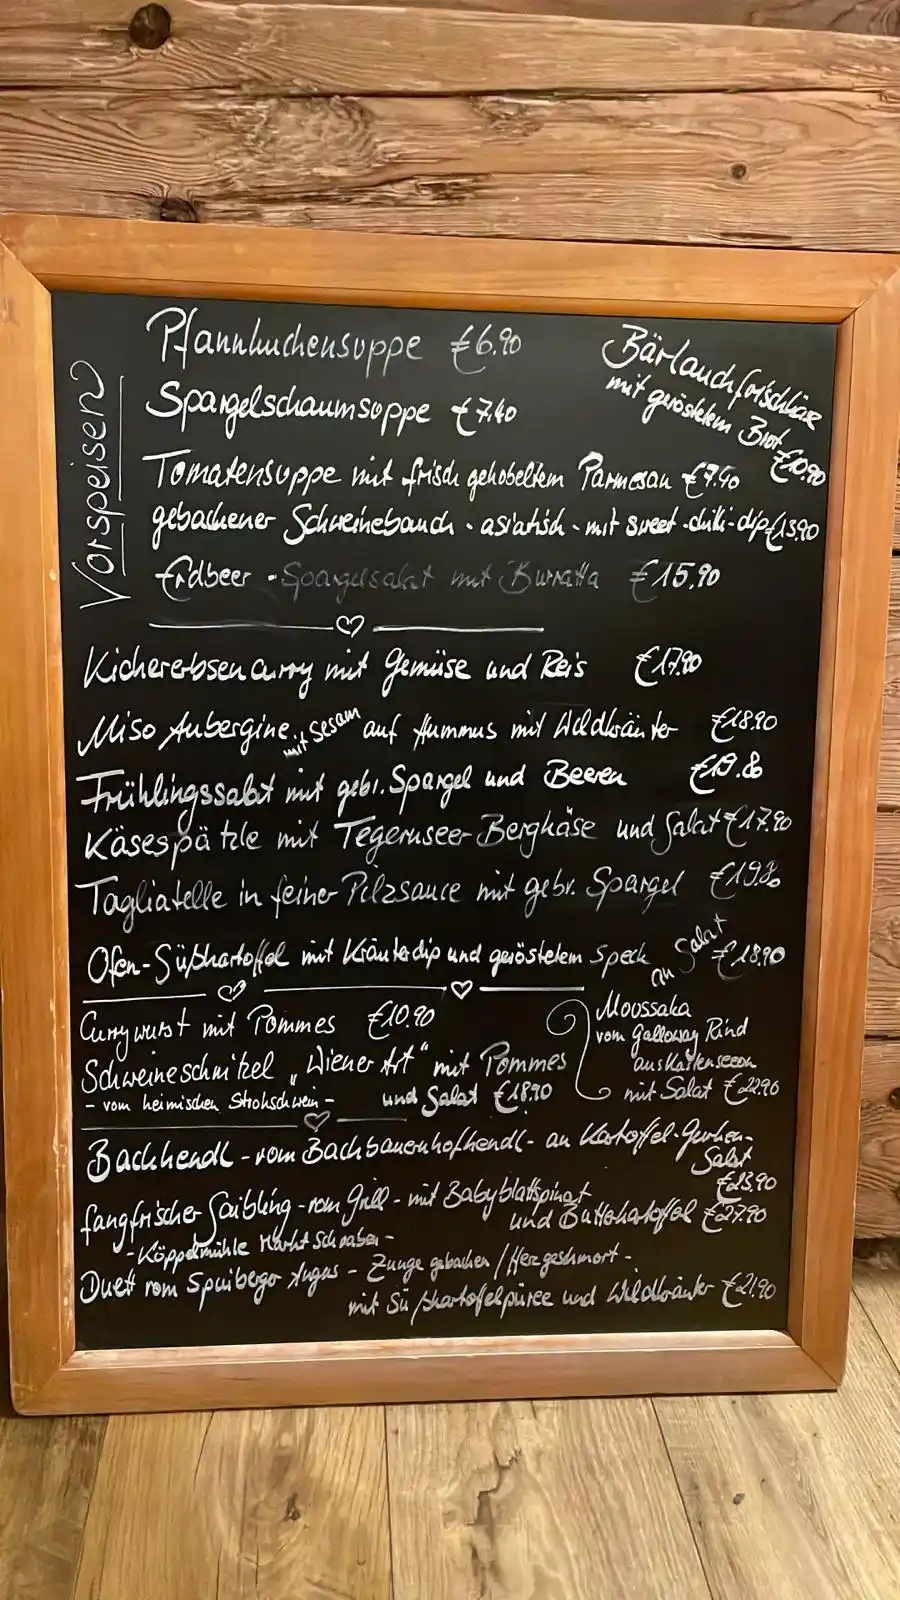 Vorspeisen
Pfannkuchensuppe €6.90
Spargelschaumsuppe €7.40
Bärlauchfrischkäse
mit geröstetem Brot
€10.90
Tomatensuppe mit frisch gehobeltem Parmesan €7.40
gebackener Schweinebauch - asiatisch - mit sweet-chili-dip €13.90
Erdbeer - Spargelsalat mit Burratta €15.90
Kichererbsencurry mit Gemüse und Reis €17.90
Miso Aubergine mit Sesam auf Hummus mit Wildkräuter €18.90
Frühlingssalat mit gebr. Spargel und Beeren €19.80
Käsespätzle mit Tegernseer Bergkäse und Salat €17.90
Tagliatelle in feiner Pilzsauce mit gebr. Spargel €19.80
Ofen-Süßkartoffel mit Kräuterdip und geröstetem Speck an Salat €18.90
Currywurst mit Pommes €10.90
Schweineschnitzel „Wiener Art" mit Pommes
- vom heimischen Strohschwein - und Salat €18.90
Moussaka
vom Galloway Rind
aus
mit Salat €22.90
Backhendl - vom Bachbauernhofhendl - an Kartoffel-Gurken-
Salat
€23.90
fangfrischer Saibling - vom Grill - mit Babyblattspinat
und Butterkartoffel €27.90
- Köppelmühle Markt Schwaben -
Duett vom Angus - Zunge gebacken / Herz geschmort -
mit Süßkartoffelpüree und Wildkräuter €21.90